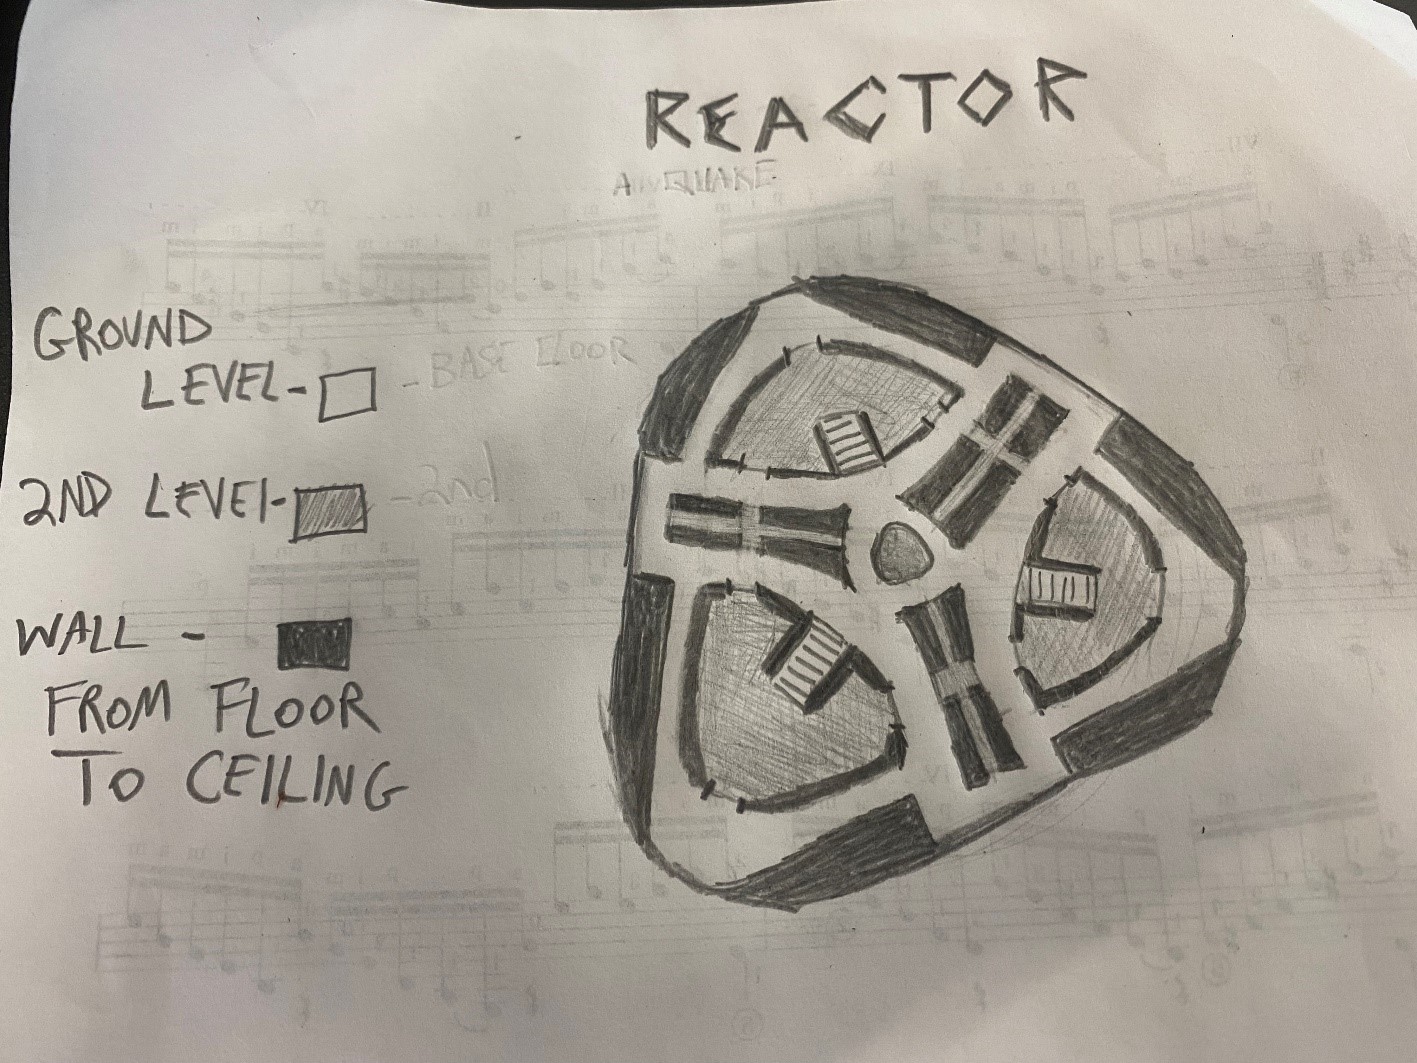 REACTOR
QUAKE
GROUND
LEVEL- - BASE FLOOR
2ND LEVEL- - 2nd
WALL -
FROM FLOOR
TO CEILING